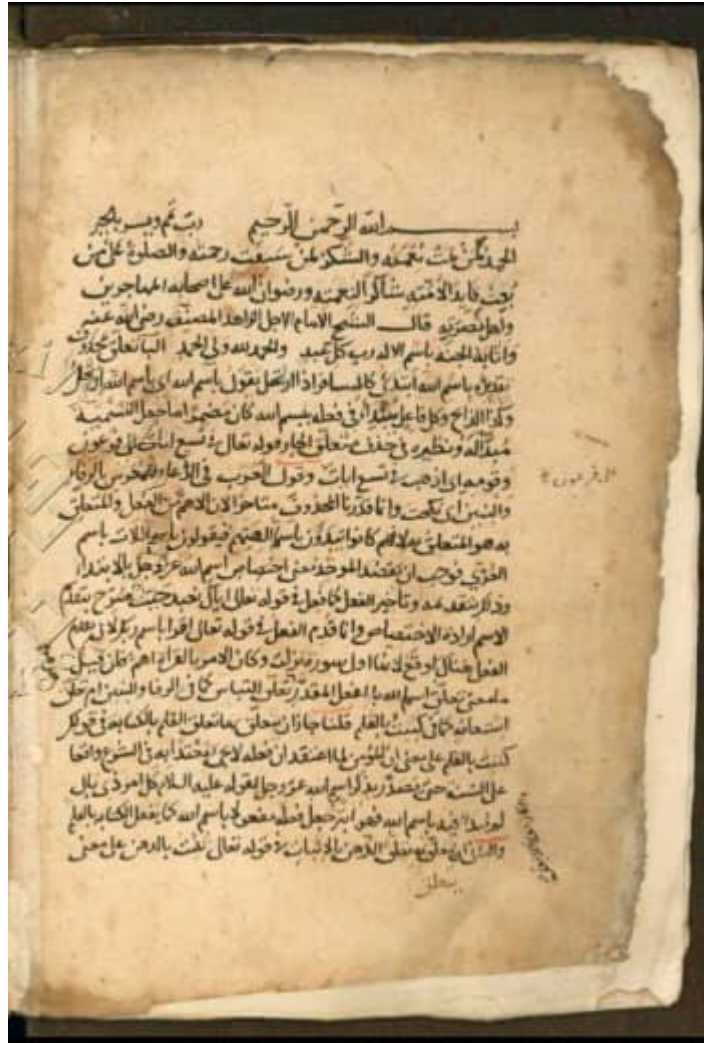 بسم الله الرحمن الرحيم رب تمم ويسر بالخير
الحمد لمن تمت نعمته والشكر لمن سبقت رحمته والصلوة على من
بعث شاكرا لنعمته ورضوان الله على اصحابه المهاجرين
واهل نصرته قال الشيخ الامام الاجل الزاهد المصنف رضي الله عنه
واثابه الجنة باسم الاله رب كل عبد والحمد لله ولي الحمد البا تعلق بمحذوف
تقديره باسم الله ابتدئ كالمسافر اذا ارتحل يقول باسم الله اي باسم الله ارتحل
وكذا الذابح وكل فاعل يبتدأ في فعله ببسم الله كان مضمرا ما جعل التسمية
مبدأ له ونظيره في حذف متعلق الجار قوله تعالى في تسع ايات الى فرعون
وقومه اي اذهب في تسع ايات وقول العرب في الدعاء للمعرس بالرفاء
والبنين اي نكحت وانا قدرنا المحذوف متاخرا لان الاهم من الفعل والمتعلق
به هو المتعلق به لانهم كانوا يبدؤن باسماء الهتهم فيقولون باسم اللات باسم
العزي فوجب ان يقصد الموحد معنى اختصاص اسم الله عز وجل بالابتداء
وذلك بتقديمه وتاخير الفعل كما فعل في قوله تعالى اياك نعبد حيث صرح بتقديم
الاسم ارادة الاختصاص وانا قدم الفعل في قوله تعالى اقرا باسم ربك لان تقديم
الفعل هناك اوقع لانها اول سورة نزلت وكان الامر بالقراءة اهم فان قيل
ما معنى تعلق اسم الله بالفعل المقدر تعلق التباس كما في الرفا والبنين ام تعلق
استعانة كما في كتبت بالقلم قلنا جاز ان يتعلق بها تعلق القلم بالكتابة في قولك
كتبت بالقلم على معنى ان المؤمن لما اعتقد ان فعله لا يجيء معتدا به في الشرع واقعا
على السنة حتى يصدر بذكر اسم الله عز وجل لقوله عليه السلام كل امر ذي بال
لم يبدا فيه باسم الله فهو ابتر جعل فعله مفعولا باسم الله كما يفعل الكتاب بالقلم
والثاني ان يتعلق به تعلق الدهن بالانبات في قوله تعالى تنبت بالدهن على معنى
يتعلق
الى فرعون